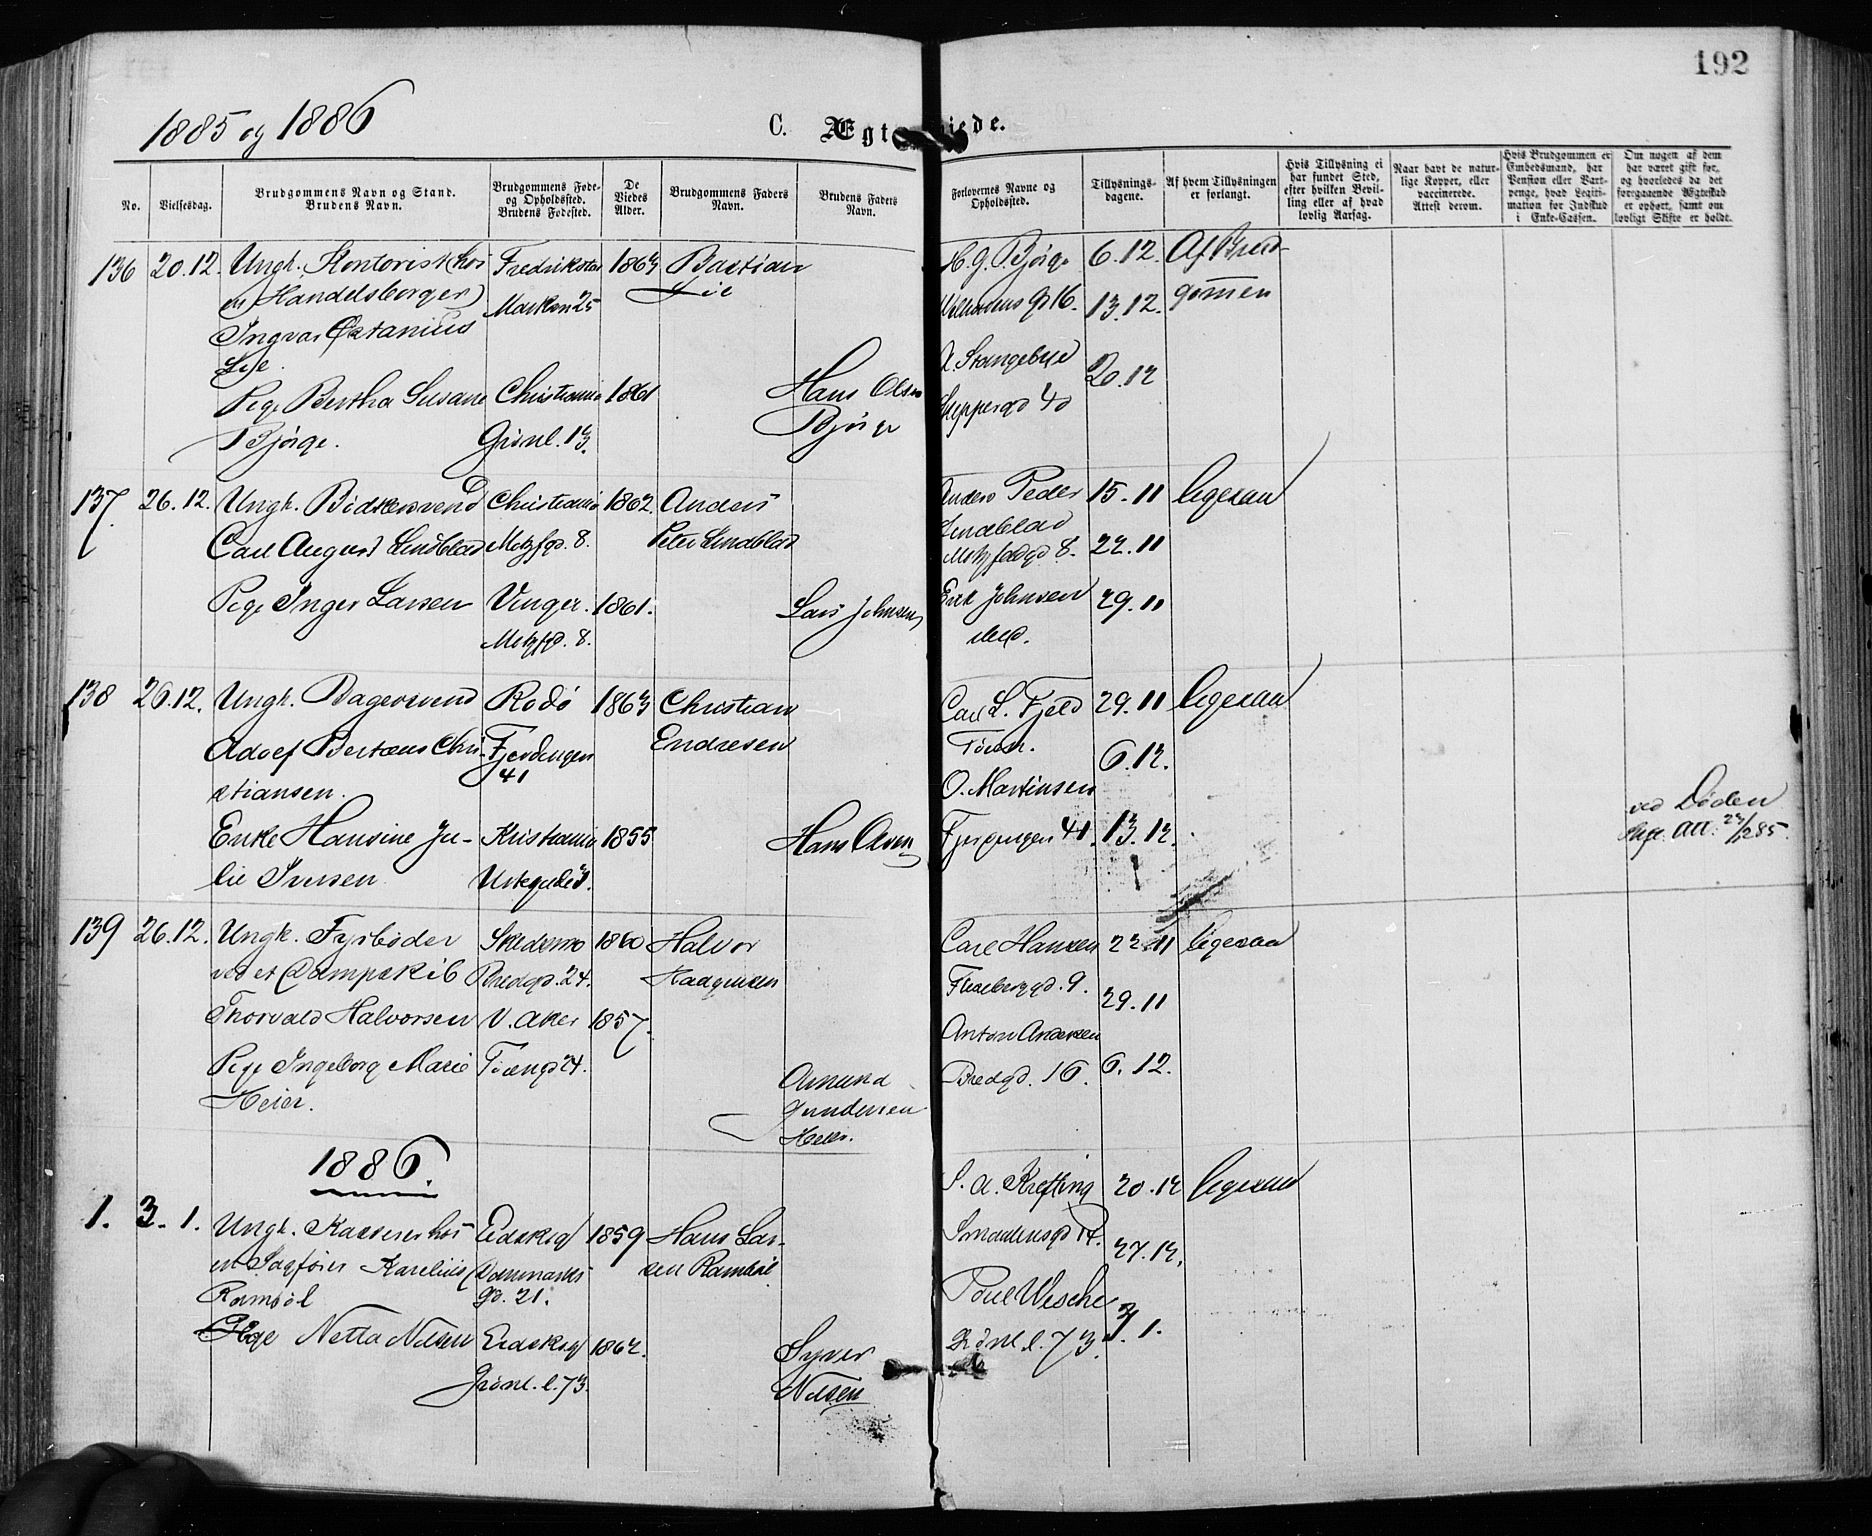 192
1885 og 1886
C. Ægt viede.
No.
Vielsesdag.
Brudgommens Navn og Stand.
Brudens Navn.
Brudgommens Føde-
og Opholdssted.
Brudens Fødested.
De
Viedes
Alder.
Brudgommens Faders
Navn.
Brudens Faders
Navn.
Forlovernes Navne og
Opholdssted.
Tillysnings-
dagene.
Af hvem Tillysningen
er forlangt.
Hvis Tillysning ei
har fundet Sted,
efter hvilken Bevil-
ling eller af hvad
lovlig Aarsag.
Naar havt de natur-
lige Kopper, eller
vaccinerede.
Attest derom.
Hvis Brudgommen er
Embedsmand, har
Pension eller Vart-
penge, hvad Legiti-
mation for Indskud
i Enke-Cassen.
Om nogen af dem
har været gift før,
og hvorledes da det
foregaaende Ægteskab
er ophørt, samt om
lovligt Skifte er holdt.
136 20.12. Ungk. Kontorist (hos
en Handelsborger)
Ingvar Octanius
Lie.
Fredrikstad
Marken 25
1863 Bastian
Lie
Pige Bertha Susane
Bjørge.
Christiania
Grønl. 13.
1861
Hans Olsen
Bjørge
H. G. Bjørge
gd 16.
A. Stangebye
Skippergd 4d
6.12.
13.12.
20.12
Af Brud-
gomen
137 26.12. Ungk. Bødkersvend
Carl August Lindblad
Christiania
Motzfgd. 8.
1862. Anders
Peter Lindblad
Pige Inger Larsen
Vinger.
Motzfgd. 8.
1861.
Lars Johnsen
Anders Peder
Lindblad
Motzfeldgd 8.
Erik Johnsen
ibid.
15.11
22.11
29.11
ligesaa
138 26.12. Ungk. Bagersvend
Adolf Bertæus Chri-
stiansen.
Rødø
Fjerdingen
41
1863 Christian
Endresen
Enke Hansine Ju-
lie Iversen
Kristiania
1855
Hans Olsen
Carl L. Fjeld
Tømr.
O. Martinsen
Fjerdingen 41.
29.11
6.12.
13.12.
ligesaa
ved Døden
Skft. Att. 23/12 85.
139 26.12. Ungk. Fyrbøder
ved et Dampskib
Thorvald Halvorsen
Skedsmo
Bredgd. 24.
1860 Halvor
Haagensen
Pige Ingeborg Marie
Heier.
V. Aker
Tøiengd 24.
1857.
Amund
Gundersen
Heier.
Carl Hansen
gd. 9.
Anton Andersen
Bredgd. 16.
22.11
29.11
6.12.
ligesaa
1886.
1. 3.1. Ungk. Kasserer hos
en Sagfører Karelius
Ramsøl
Eidskog
Danmarks
gd. 21.
1859 Hans Lar-
sen Ramsøl
Pige Netta Nilsen
Eidskog
Grønl. l. 73.
1862.
Syver
Nilsen
S. A. Krefting
Smaalensgd 12.
Poul Wesche
Grønl. l. 73.
20.12
27.12.
3.1.
ligesaa